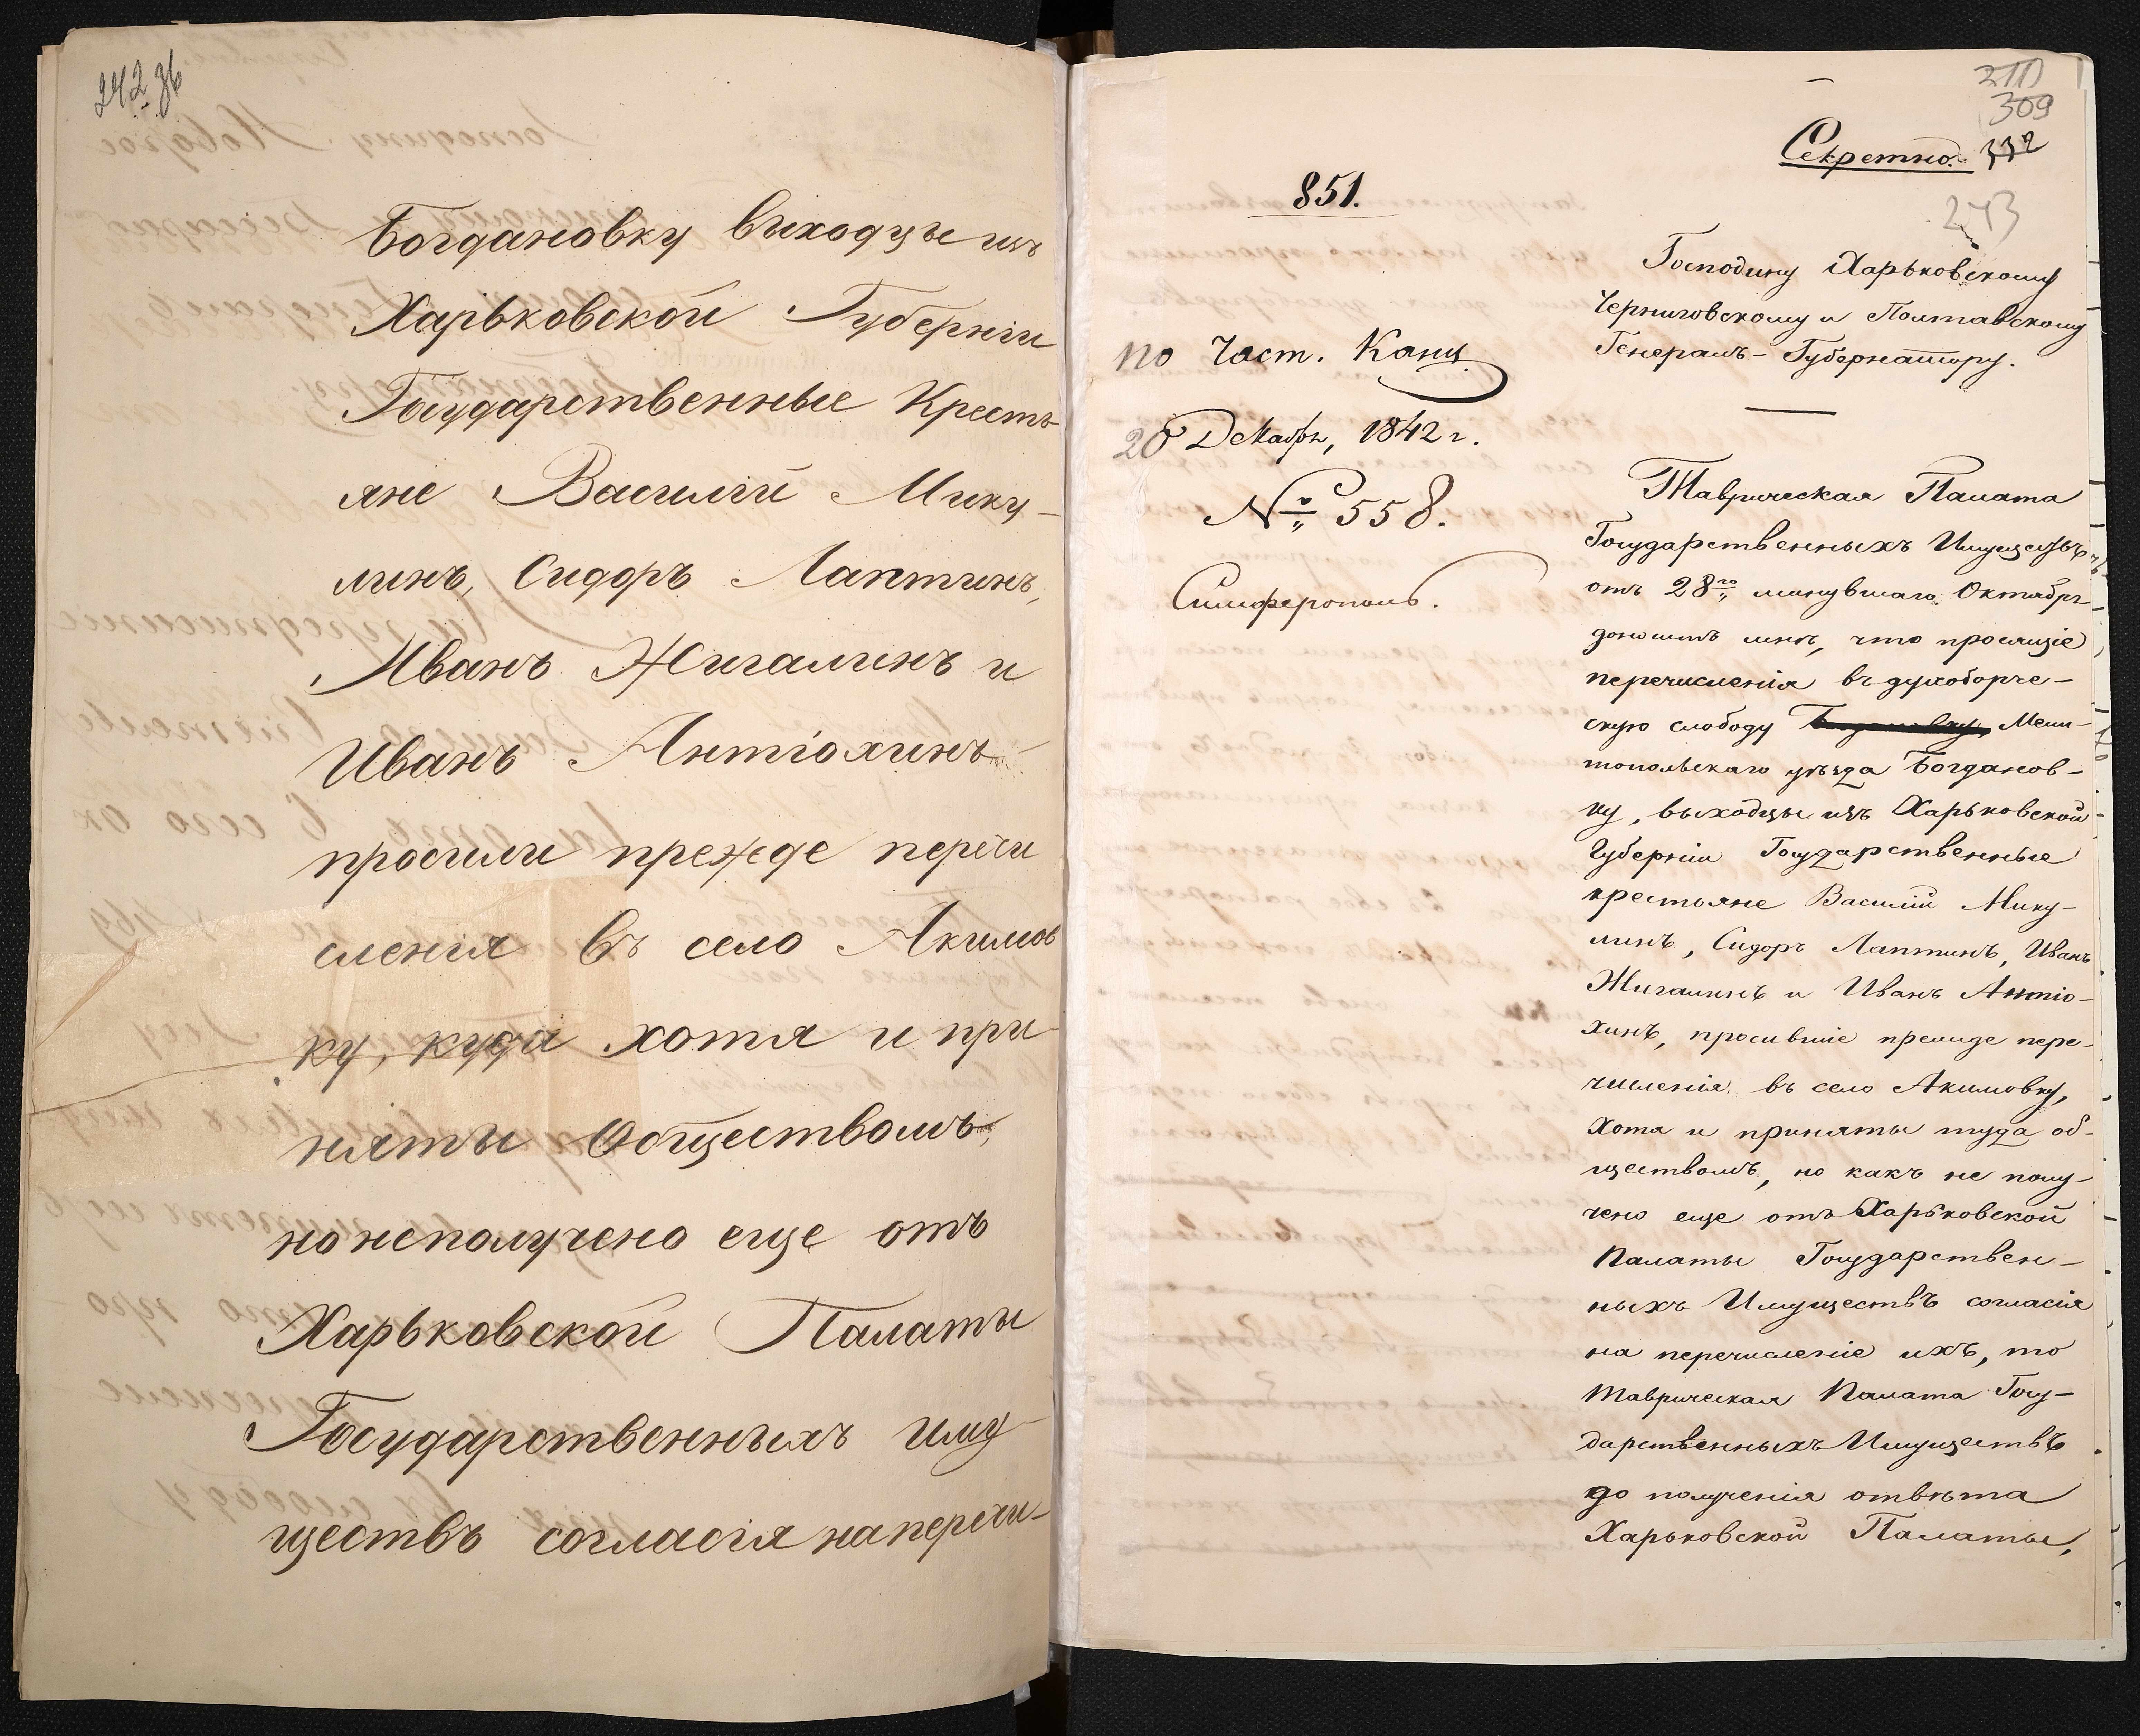 242 об
Богдановку выходцы изъ
Харьковской Губерніи
Государственные Кресть
яне Василій Мику-
линъ, Сидоръ Лаптинъ,
Иванъ Жигалинъ и
Иванъ Антіохинъ
просили прежде перечи
сленія въ село Акимов
ку, куда хотя и при
няты Обществомъ,
но неполучено еще отъ
Харьковской Палаты
Государственныхъ Иму
ществъ согласія на перечи-
309
Секретно. 332
243
851.
Господину Харьковскому
Черниговскому и Полтавскому
Генералъ-Губернатору.
по Част. Канц.
28 Декабря, 1842 г.
№ 558.
Симферополь.
Таврическая Палата
Государственныхъ Имуществъ
отъ 28го минувшаго Октября
доноситъ мнѣ, что просящіе
перечисленія въ духоборче-
скую слободу Мели-
топольскаго уѣзда Богданов-
ку, выходцы изъ Харьковской
Губерніи Государственные
крестьяне Василій Мику-
линъ, Сидоръ Лаптинъ, Иванъ
Жигалинъ и Иванъ Антіо-
хинъ, просившіе прежде пере-
численія въ село Акимовку,
хотя и приняты туда об-
ществомъ, но какъ не полу-
чено еще отъ Харьковской
Палаты Государствен-
ныхъ Имуществъ согласія
на перечисленіе ихъ, то
Таврическая Палата Госу-
дарственныхъ Имуществъ
до полученія отвѣта
Харьковской Палаты,